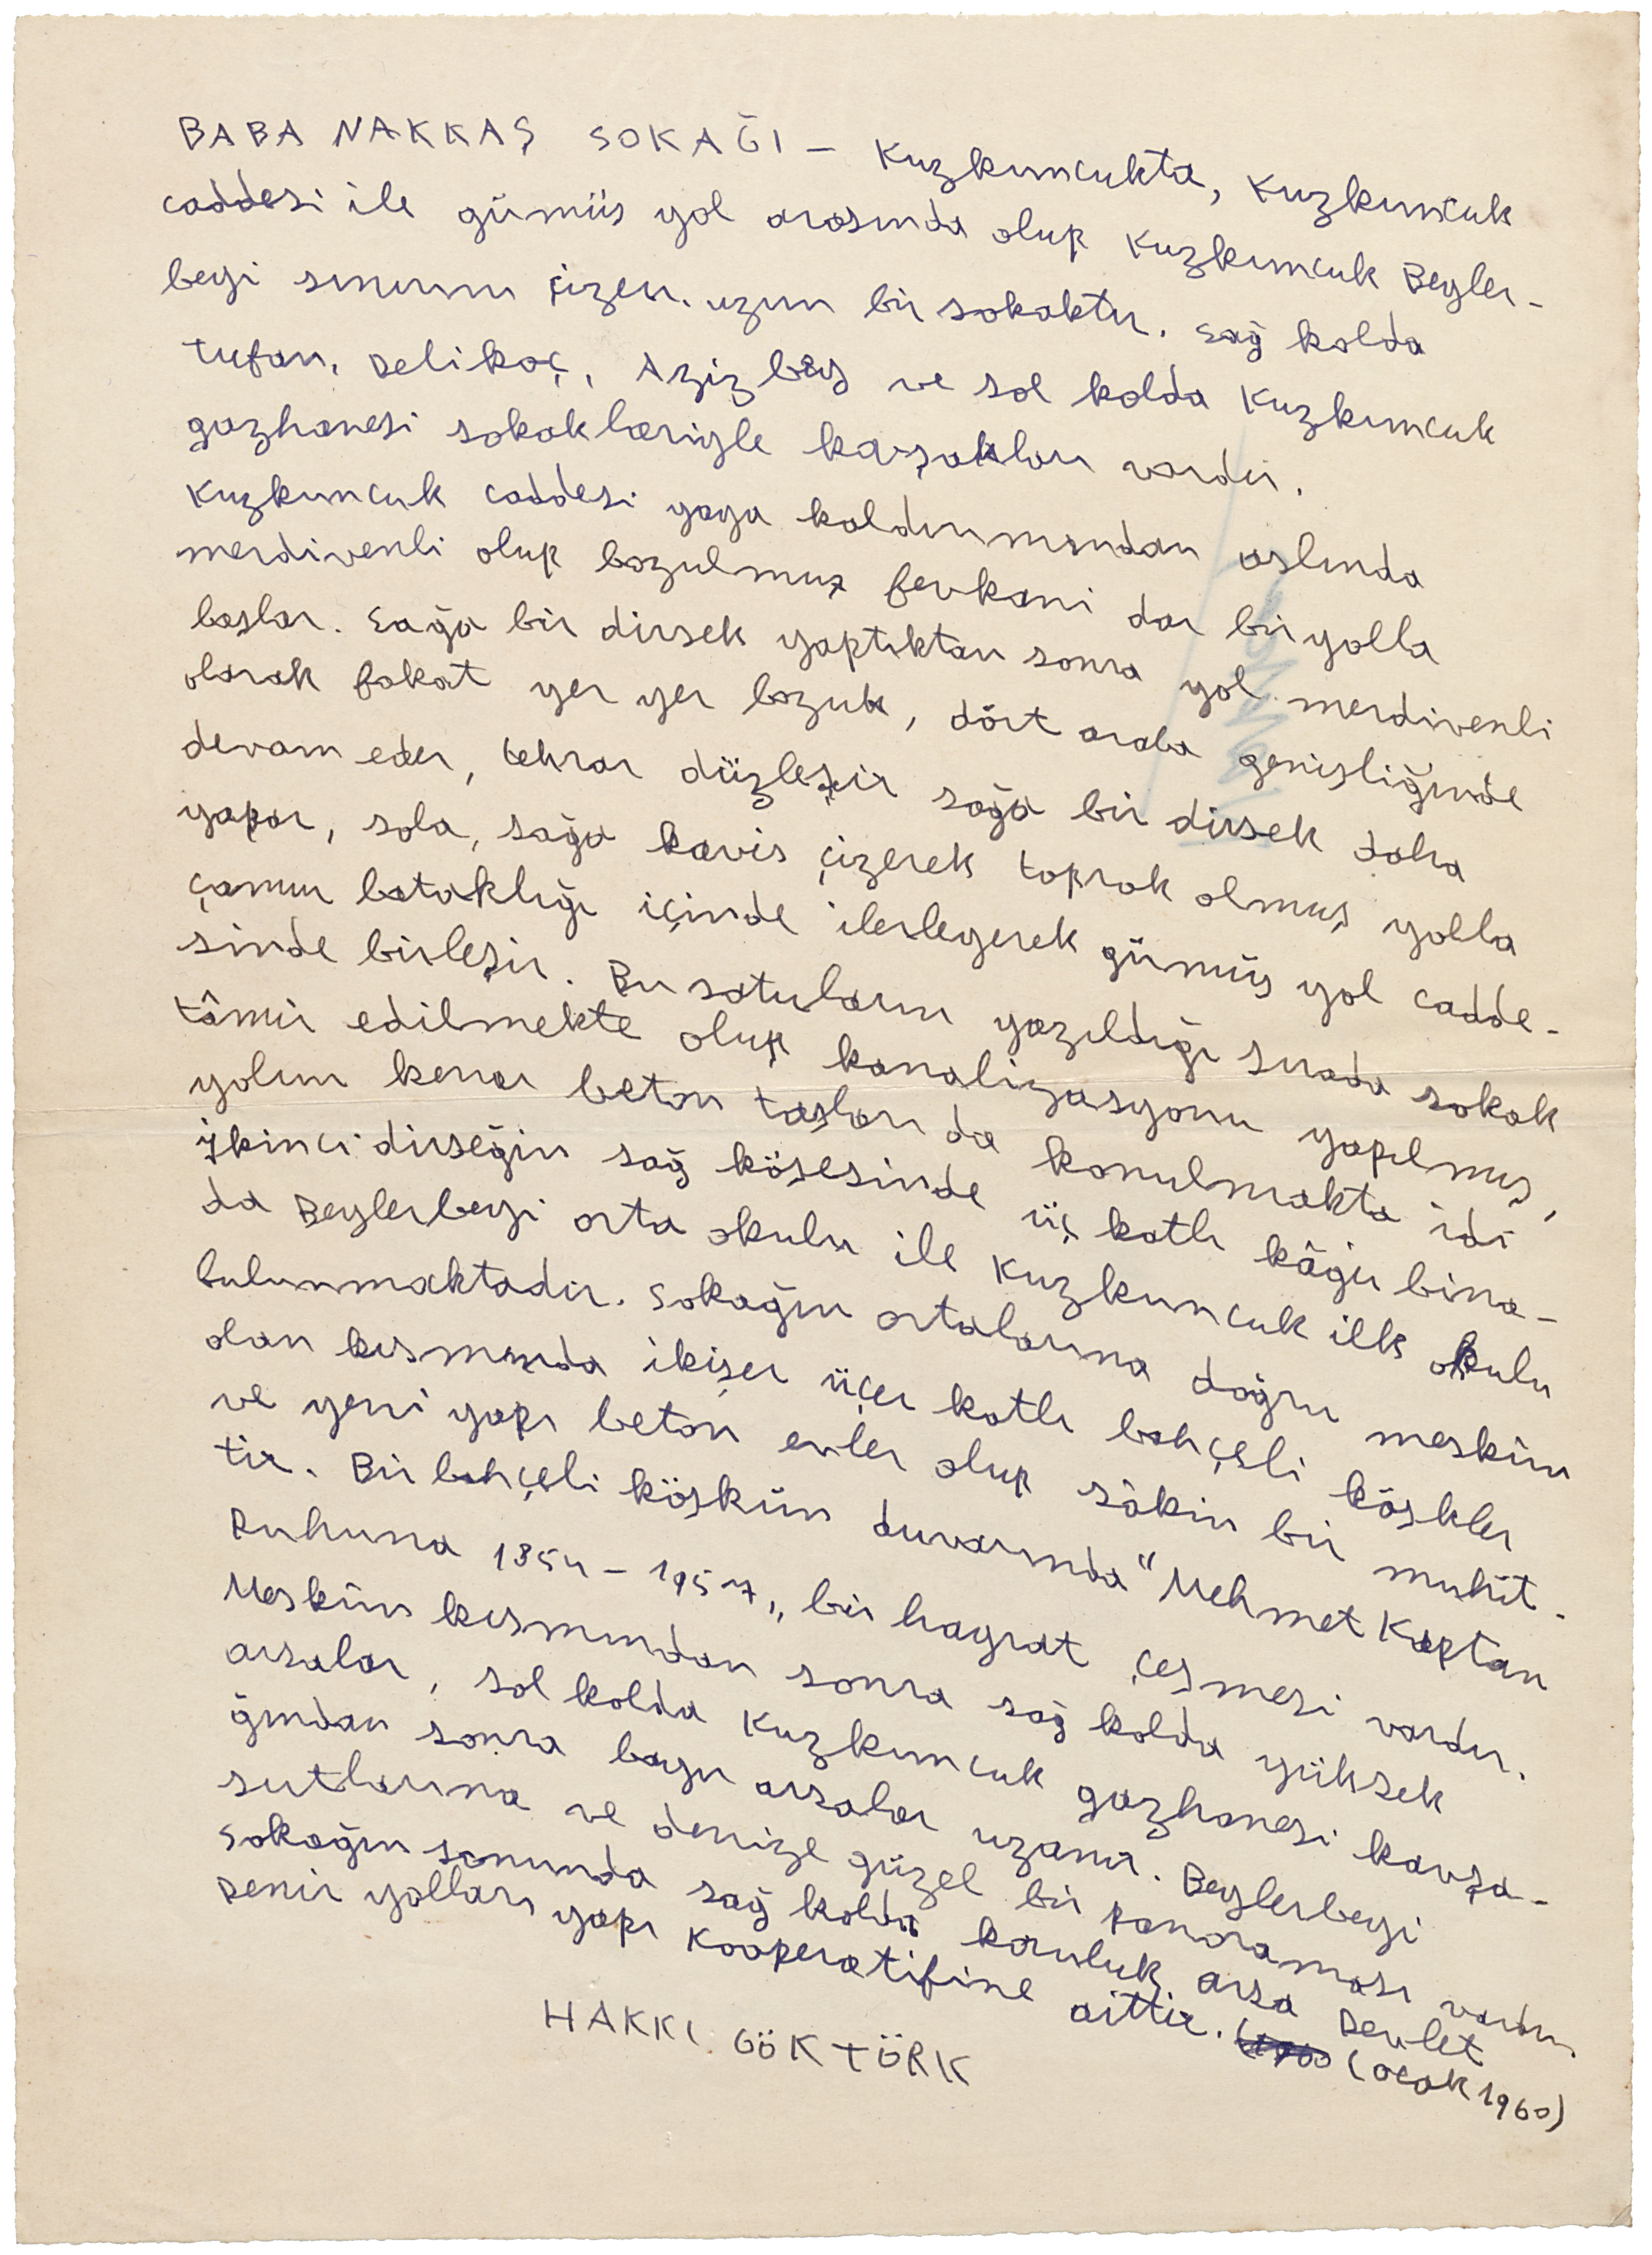 BABA NAKKAŞ SOKAĞI — Kuzkuncukta, Kuzkuncuk
caddesi ile gümüş yol arasında olup Kuzkuncuk Beyler-
beyi sınırını çizen. uzun bir sokaktır. Sağ kolda
Tufan, Delikoç, Azizbey ve sol kolda Kuzkuncuk
gazhanesi sokaklariyle kavşakları vardır.
Kuzkuncuk caddesi yaya kaldırımından aslında
merdivenli olup bozulmuş fevkani dar bir yolla
başlar. Sağa bir dirsek yaptıktan sonra yol merdivenli
olarak fakat yer yer bozuk, dört araba genişliğinde
devam eder, tekrar düzleşir sağa bir dirsek daha
yapar, sola, sağa kavis çizerek toprak olmuş yolla
çamur bataklığı içinde ilerleyerek gümüş yol cadde-
sinde birleşir. Bu satuların yazıldığı sırada sokak
tâmir edilmekte olup kanalizasyonu yapılmış,
yolun kenar beton taşları da konulmakta idi
İkinci dirseğin sağ köşesinde üç katlı kâgir bina-
da Beylerbeyi orta okulu ile Kuzkuncuk ilk okulu
bulunmaktadır. Sokağın ortalarına doğru meskûn
olan kısmında ikişer üçer katlı bahçeli köşkler
ve yeni yapı beton evler olup sâkin bir muhit-
tir. Bir bahçeli köşkün duvarında "Mehmet Kaptan
Ruhuna 1854 – 1957„ bir hayrat çeşmesi vardır.
Meskûn kısmından sonra sağ kolda yüksek
arsalar, sol kolda Kuzkuncuk gazhanesi kavşa-
ğından sonra bayır arsalar uzanır. Beylerbeyi
sırtlarına ve denize güzel bir panoraması vardır.
Sokağın sonunda sağ kolda koruluk arsa Devlet
Demir yolları yapı Kooperatifine aittir. (Ocak 1960)
HAKKI GÖKTÜRK